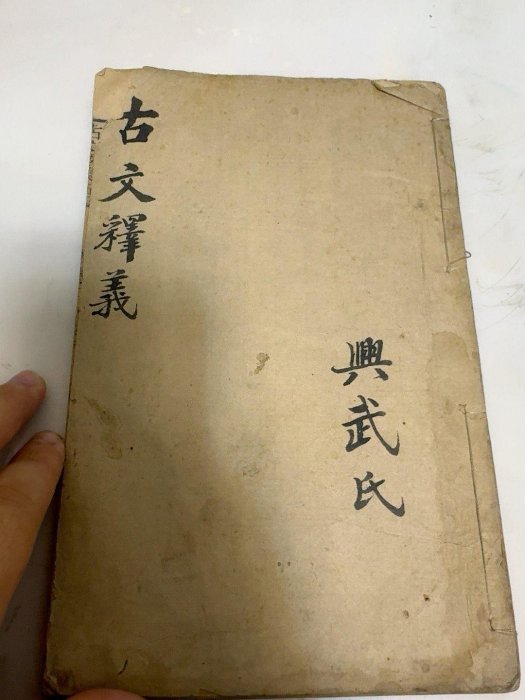 古文釋義
興武氏